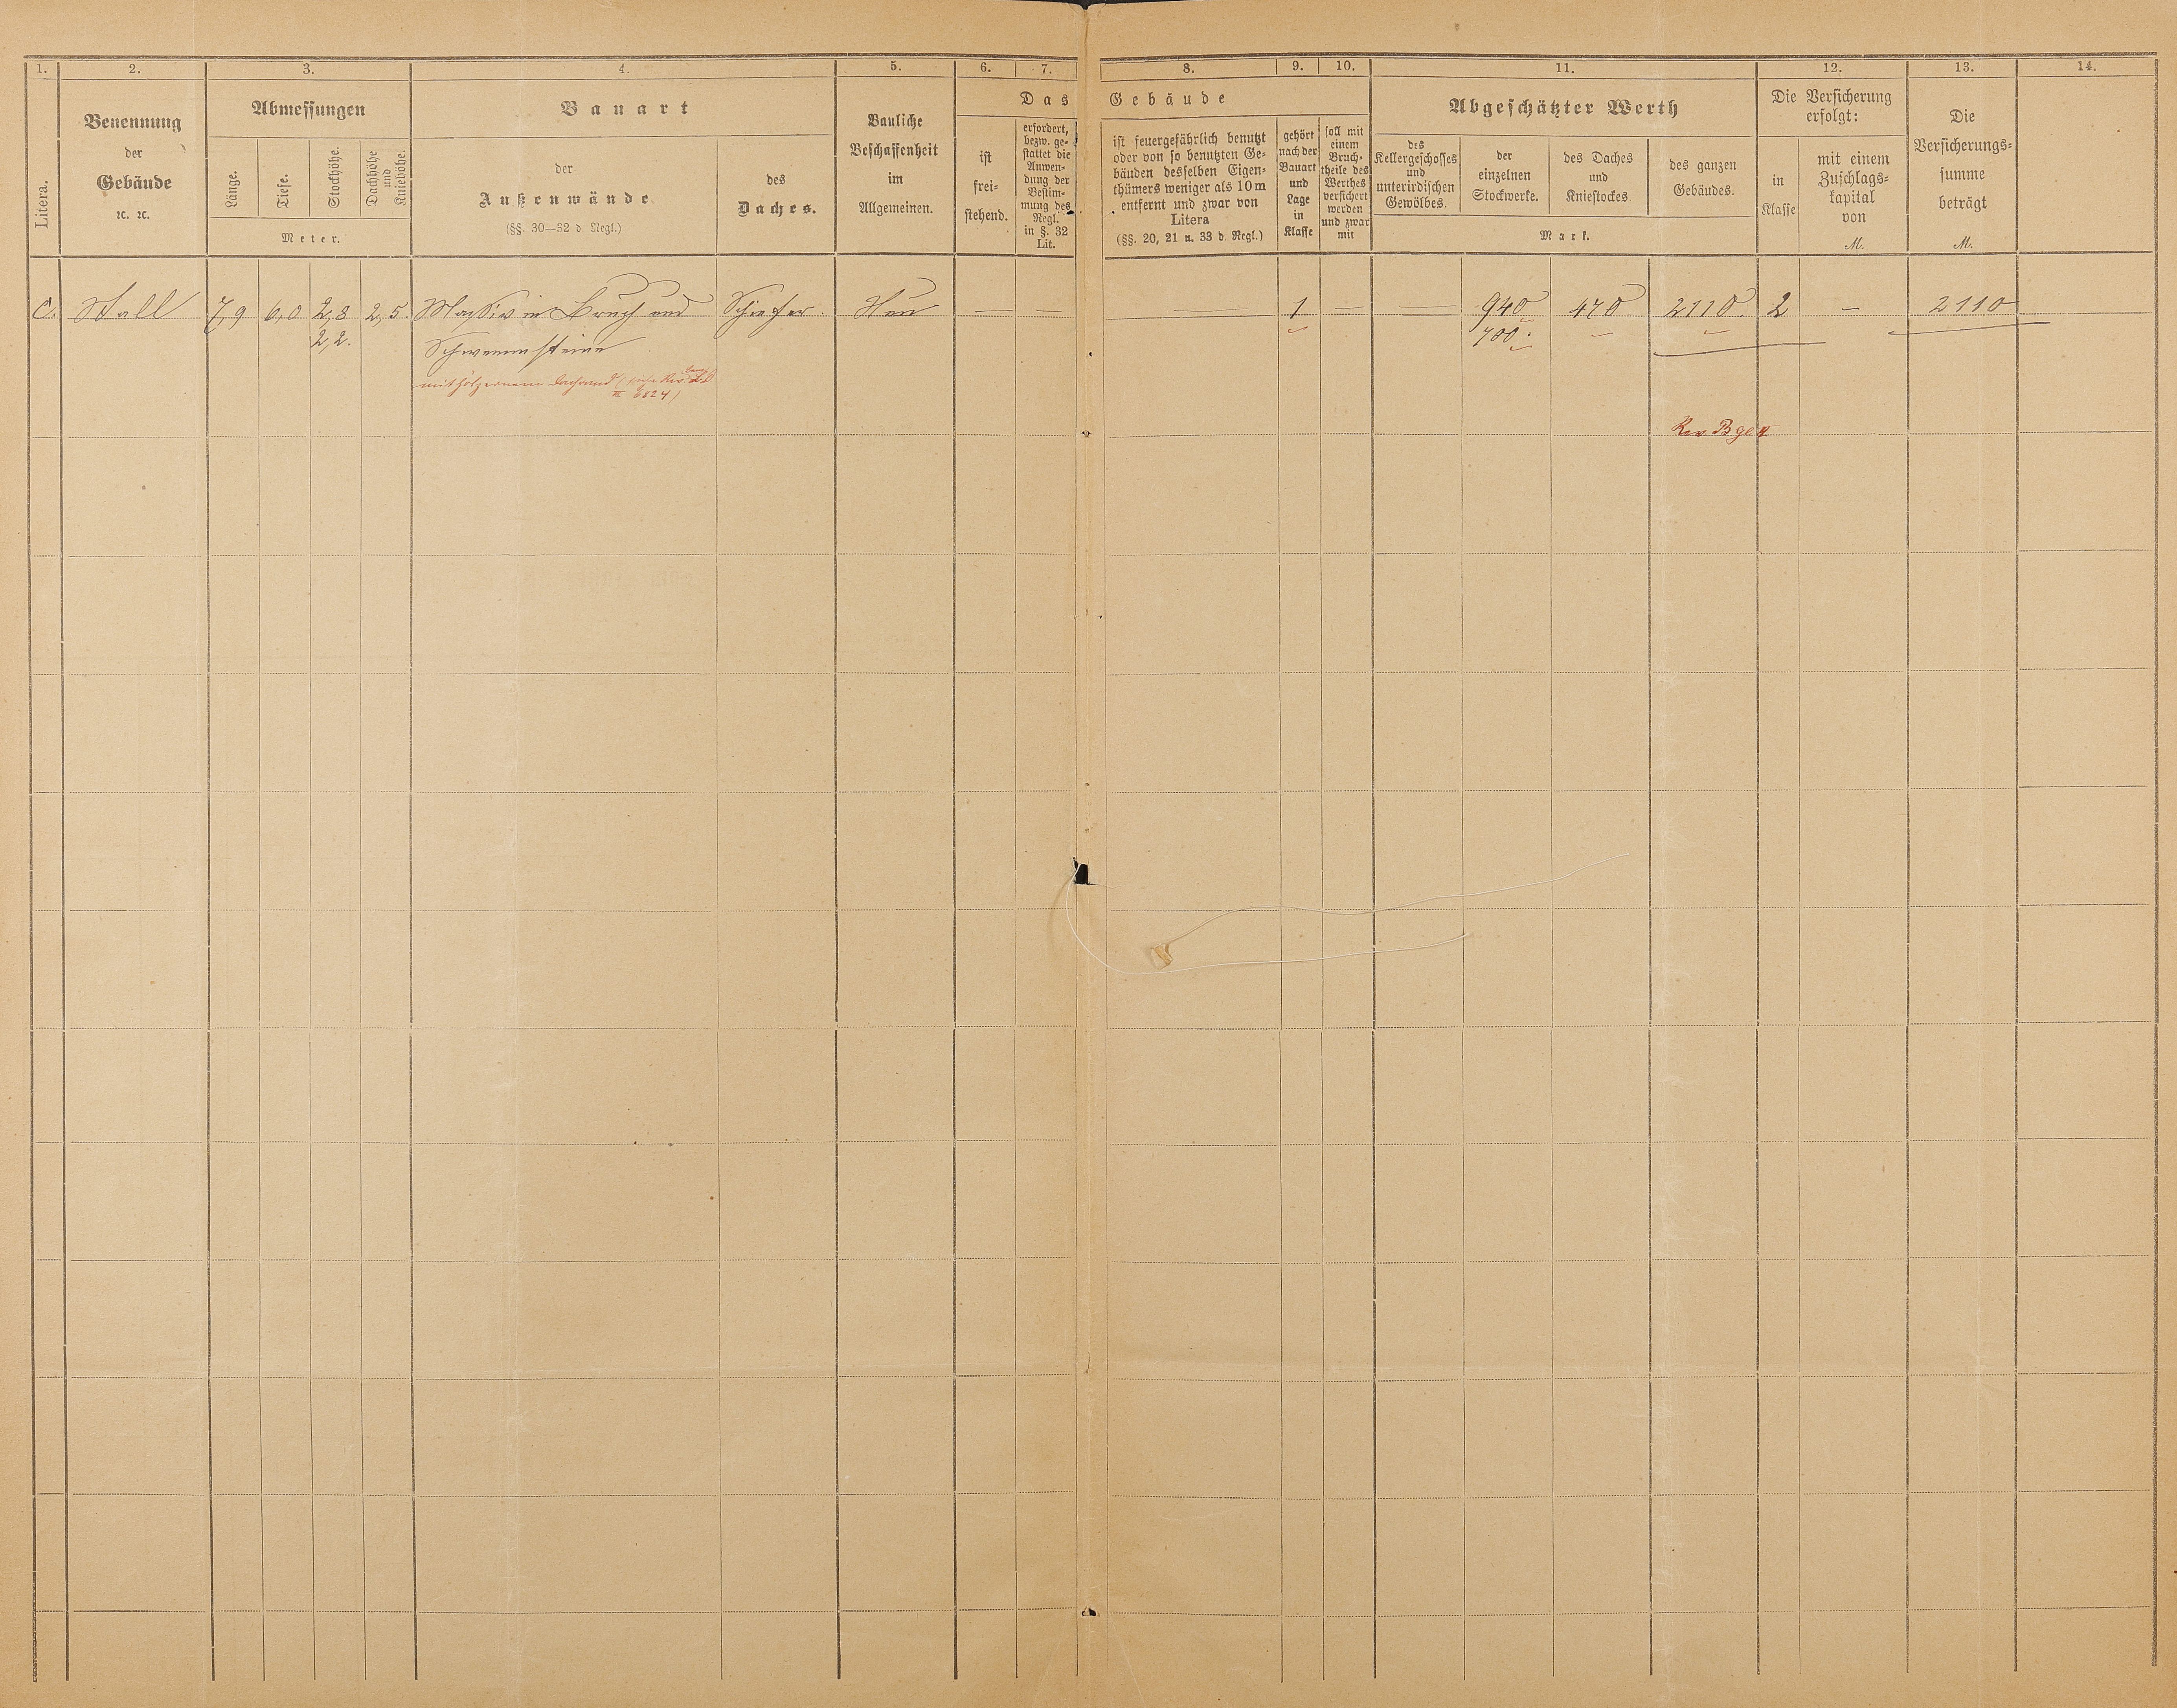 1. 2. 3. 4. 5. 6. 7. 8. 9. 10. 11. 12. 13. 14.
Litera.
Benennung
der
Gebäude
ꝛc. ꝛc.
Abmessungen
Länge.
Tiefe.
Stockhöhe.
Dachhöhe
und
Kniehöhe.
Meter.
Bauart
der
Außenwände
(§§. 30—32 d. Regl.)
des
Daches.
Bauliche
Beschaffenheit
im
Allgemeinen.
Das Gebäude
ist
frei-
stehend.
erfordert,
bezw. ge-
stattet die
Anwen-
dung der
Bestim-
mung des
Regl.
in §. 32
Lit.
ist feuergefährlich benutzt
oder von so benutzten Ge-
bäuden desselben Eigen-
thümers weniger als 10 m
entfernt und zwar von
Litera
(§§. 20, 21 u. 33 d. Regl.)
gehört
nach der
Bauart
und
Lage
in
Klasse
soll mit
einem
Bruch-
theile des
Werthes
versichert
werden
und zwar
mit
Abgeschätzter Werth
des
Kellergeschosses
und
unterirdischen
Gewölbes.
der
einzelnen
Stockwerke.
des Daches
und
Kniestockes.
des ganzen
Gebäudes.
Mark.
Die Versicherung
erfolgt:
in
Klasse
mit einem
Zuschlags-
kapital
von
M.
Die
Versicherungs-
summe
beträgt
M.
C. Stall 7,9 6,0 2,8 2,5. Massiv in Bruch und Schiefer. Neu — — — 1 — — 940 470 2110. 2 — 2110
2,2. Schwemmsteine 700.
mit hölzernem
II 6824)
Rev.